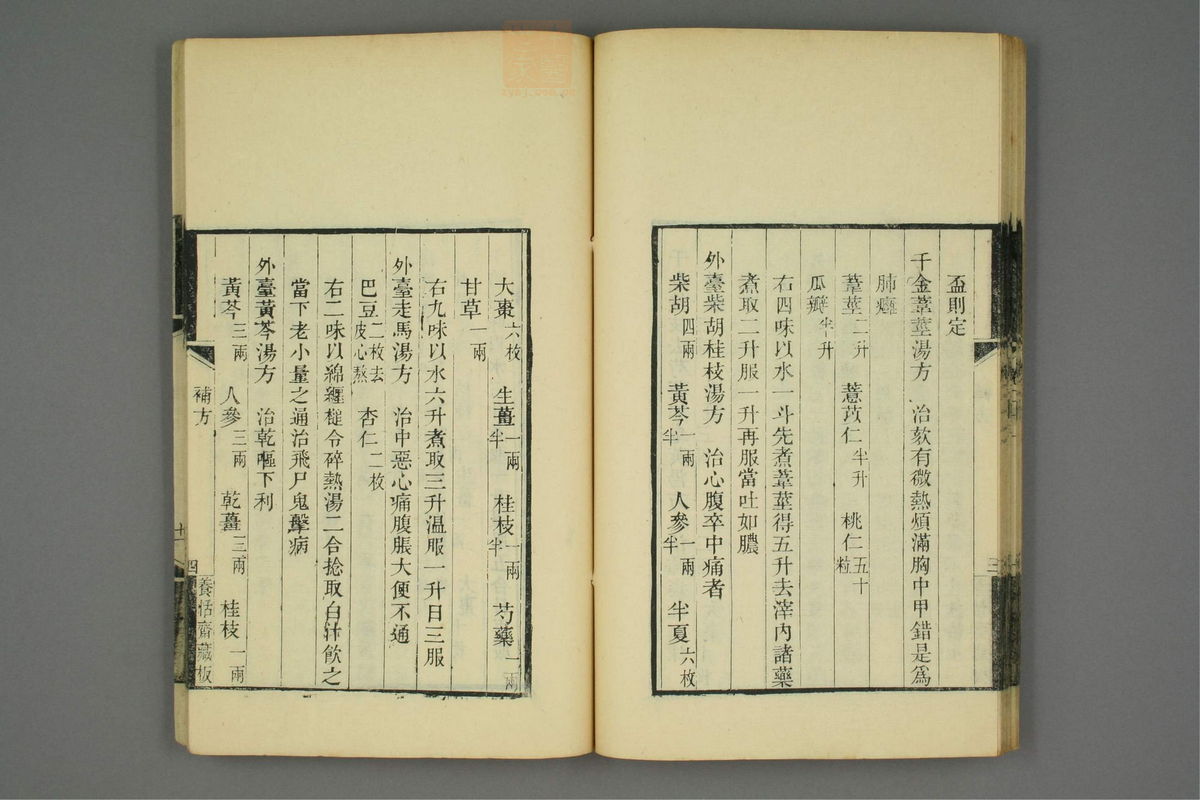 盃則定
千金葦莖湯方 治欬有微熱煩滿胸中甲錯是爲
肺癰
葦莖二升 薏苡仁半升 桃仁五十粒
瓜瓣半升
右四味以水一斗先煮葦莖得五升去滓內諸藥
煮取二升服一升再服當吐如膿
外臺柴胡桂枝湯方 治心腹卒中痛者
柴胡四兩 黃芩一兩半 人參一兩半 半夏六枚
三
大棗六枚 生薑一兩半 桂枝一兩半 芍藥一兩
甘草一兩
右九味以水六升煮取三升温服一升日三服
外臺走馬湯方 治中惡心痛腹脹大便不通
巴豆二枚去皮心熬 杏仁二枚
右二味以綿纏槌令碎熱湯二合捻取白汁飲之
當下老小量之通治飛尸鬼擊病
外臺黃芩湯方 治乾嘔下利
黃芩三兩 人參三兩 乾薑三兩 桂枝一兩
補方
四
養恬齋藏板